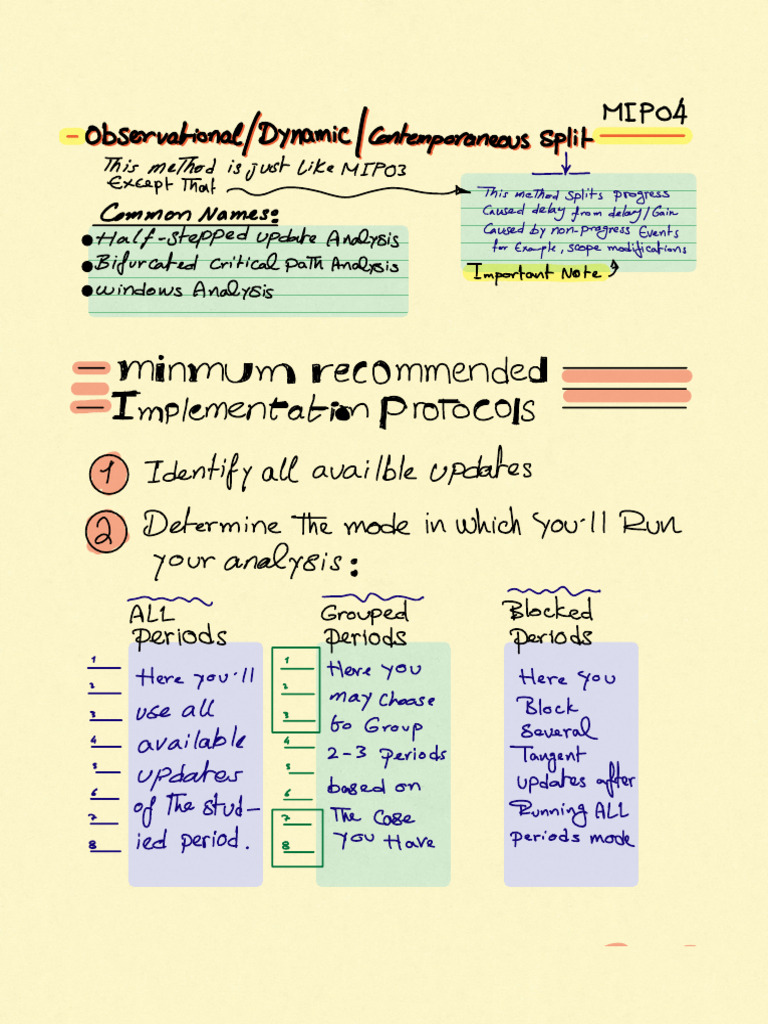 MIP04
Observational/Dynamic/Contemporaneous Split
This method is just Like MIP03
Except That
This method splits progress
Caused delay from delay/Gain
Caused by non-progress Events
for Example, scope modifications
Important Note
Common Names:
Half-stepped update Analysis
Bifurcated critical path Analysis
windows Analysis
minmum recommended
Implementation Protocols
1 Identify all availble updates
2 Determine the mode in which you'll Run
your analysis:
ALL
periods
1
2
3
4
5
6
7
8
Here you'll
use all
available
updates
of The stud-
ied period.
Grouped
periods
1
2
3
4
5
6
7
8
Here you
may choose
to Group
2-3 periods
based on
The Case
you Have
Blocked
periods
Here you
Block
several
Tangent
updates after
Running ALL
periods mode